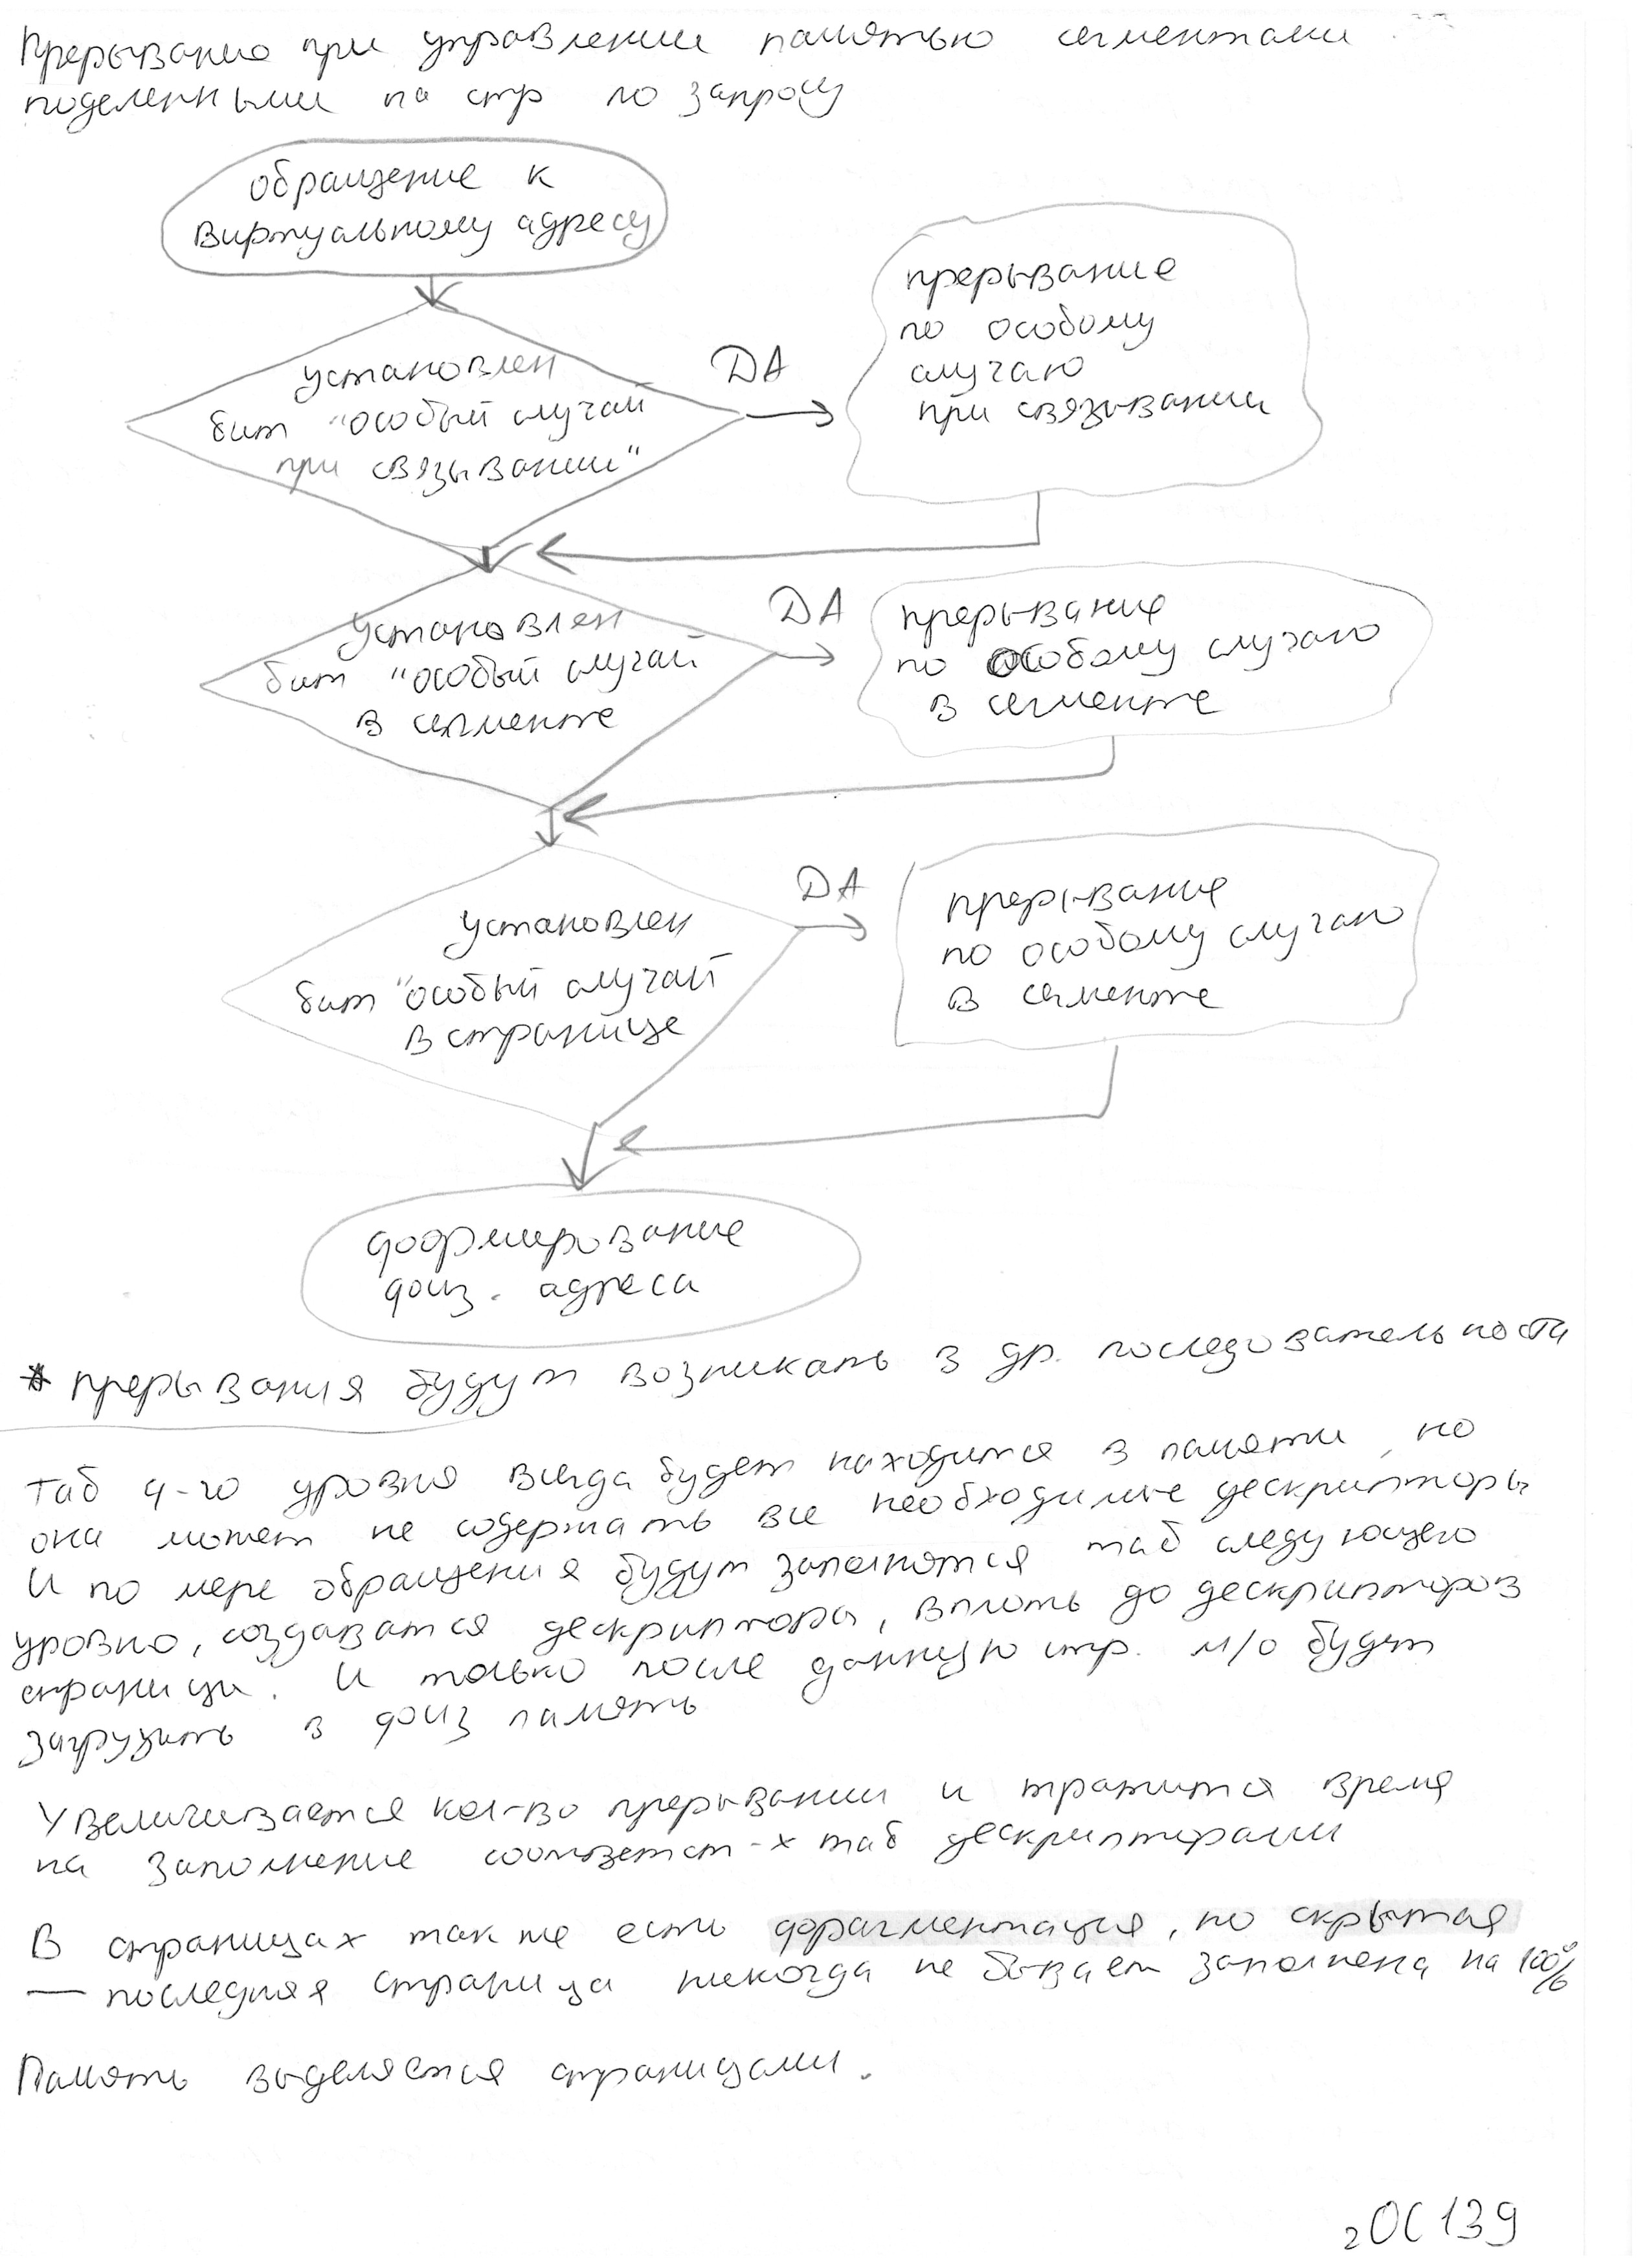 Прерывание при управлении памятью сегментами
поделенными на стр по запросу
обращение к
виртуальному адресу
установлен
бит "особый случай
при связывании"
ДА
прерывание
по особому
случаю
при связывании
установлен
бит "особый случай
в сегменте
ДА
прерывание
по особому случаю
в сегменте
установлен
бит "особый случай
в странице
ДА
прерывание
по особому случаю
в сегменте
формирование
физ. адреса
* прерывания будут возникать в др. последовательности
Таб 4-го уровня всегда будет находится в памяти, но
она может не содержать все необходимые дескрипторы
И по мере обращения будут заполнятся таб следующего
уровню, создаватся дескриптора, вплоть до дескрипторов
страницы. И только после данную стр. м/о будет
загрузить в физ память
Увеличивается кол-во прерывании и тратится время
на заполнение соответст-х таб дескрипторами
В страницах так же есть фрагментация, но скрытая
— последняя страница никогда не бывает заполнена на 100%
Память выделяется страницами.
2ОС139